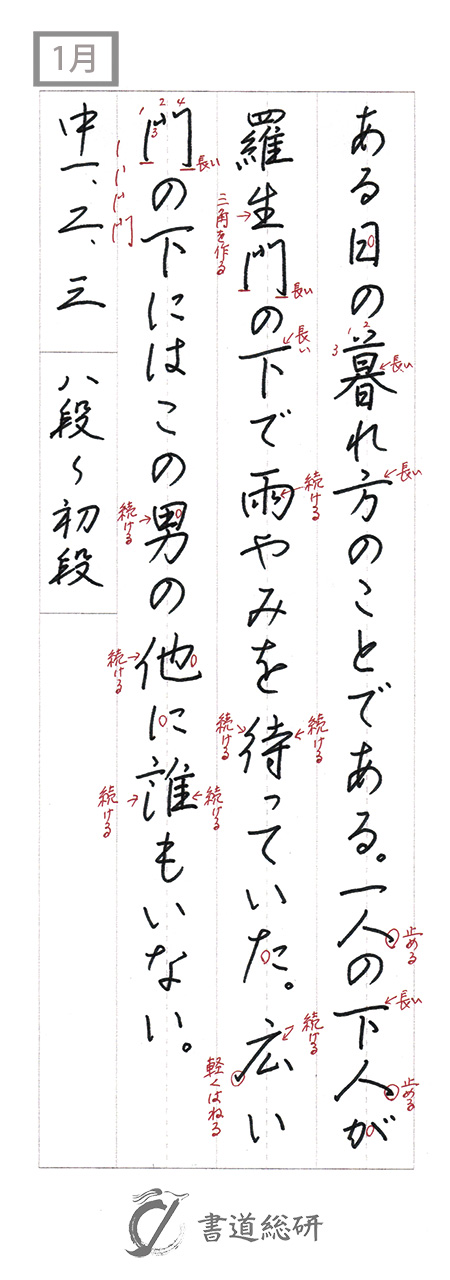 1月
ある日の暮れ方のことである。一人の下人が
1 2
3
長い
長い
止める
長い
止める
羅生門の下で雨やみを待っていた。広い
三角を作る
長い
長い
続ける
続ける
続ける
続ける
軽くはねる
門の下にはこの男の他に誰もいない。
1 2 3 4
長い
続ける
続ける
続ける
続ける
中一、二、三
八段〜初段
書道総研